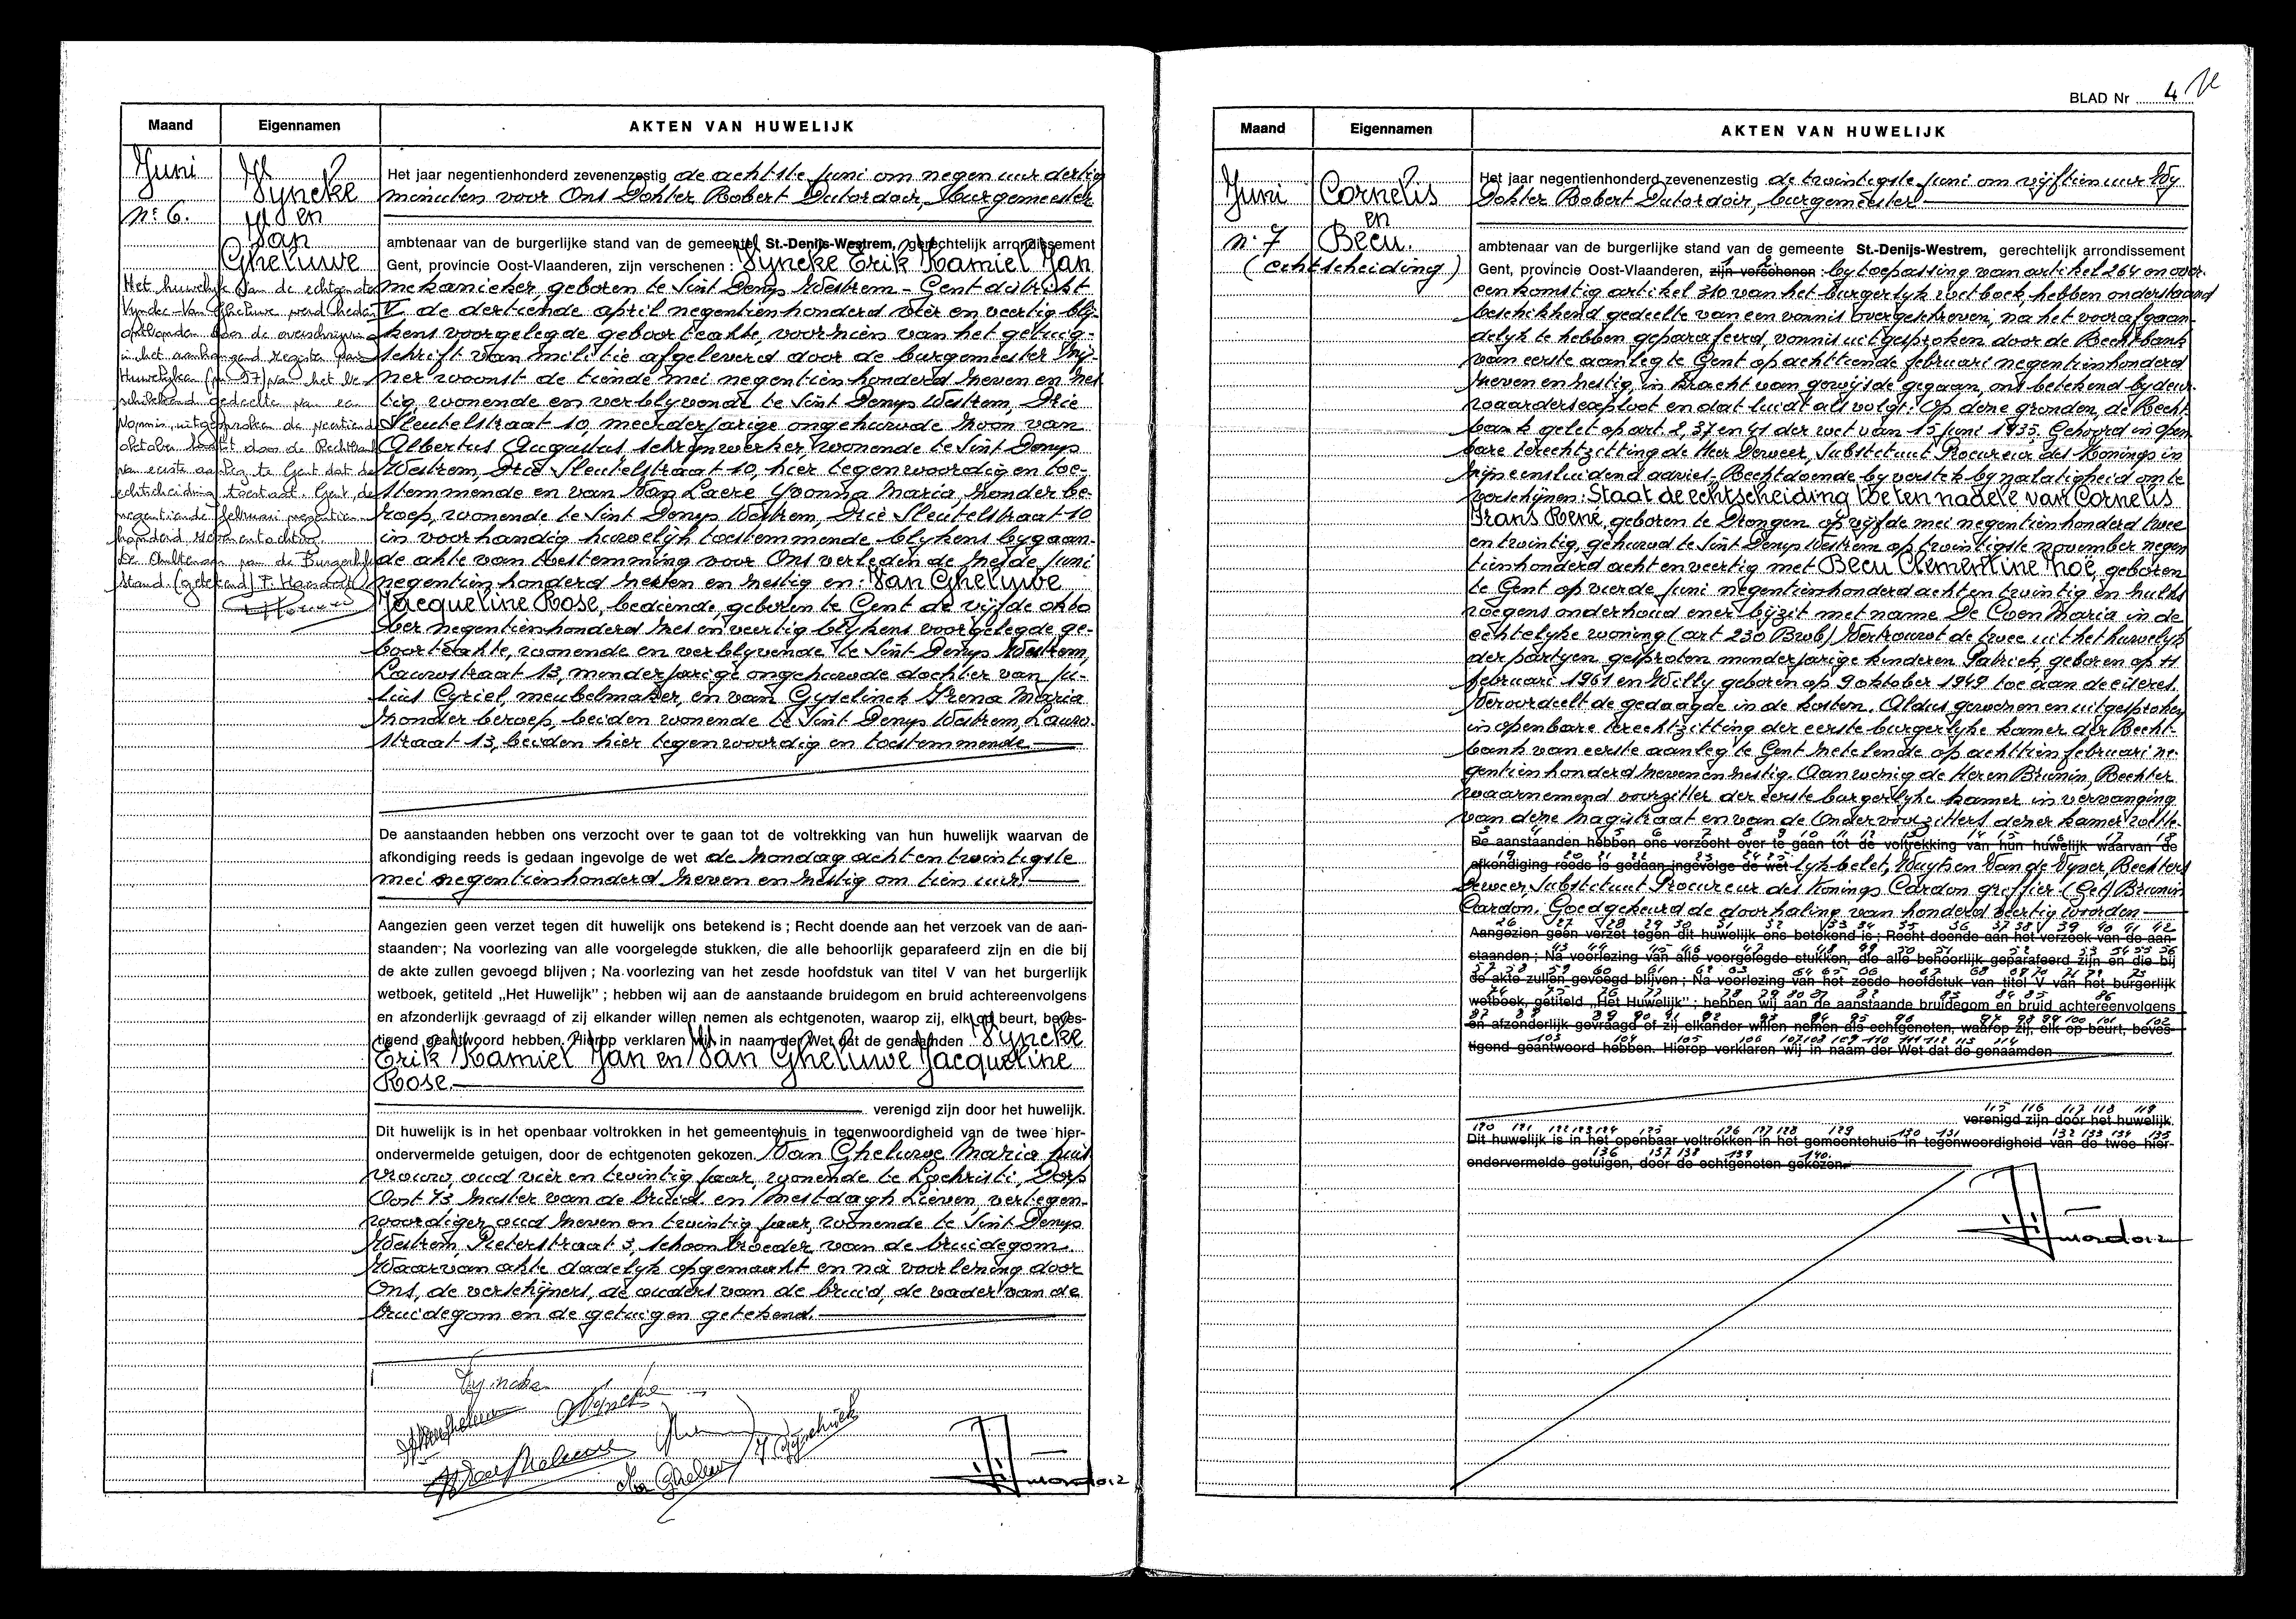 Maand Eigennamen AKTEN VAN HUWELIJK
Juni
nr 6.
Vyncke
en
Van
Gheluwe
Het huwelijk van de echtgenoten
Vyncke-Van Gheluwe werd heden
ontbonden door de overschrijving
in het aanhangend register van
Huwelijken (nr 97) van het be-
schikkend gedeelte van een
vonnis, uitgesproken de veertiende
oktober laatst door de Rechtbank
van eerste aanleg te Gent dat de
echtscheiding toestaat. Gent, de
negentiende februari negentien-
honderd
De Ambtenaar van de Burgerlijke
Stand. (getekend)
Het jaar negentienhonderd zevenenzestig de achtste juni om negen uur dertig
minuten voor Ons Dokter Robert Dutordoir, burgemeester
ambtenaar van de burgerlijke stand van de gemeente St.-Denijs-Westrem, gerechtelijk arrondissement
Gent, provincie Oost-Vlaanderen, zijn verschenen : Vyncke Erik Kamiel Jan
mekanieker, geboren te Sint Denys Westrem - Gent district
V de dertiende april negentienhonderd vier en veertig bly-
kens voorgelegde geboorteakte, voorzien van het getuig-
schrift van militie afgeleverd door de burgemeester zij-
ner woonst de tiende mei negentienhonderd zeven en zes
tig, wonende en verblyvende te Sint Denys Westrem, Drie
Sleutelstraat 10, meerderjarige ongehuwde zoon van
Albertus Augustus schrynwerker, wonende te Sint Denys
Westrem, Drie Sleutelstraat 10, hier tegenwoordig en toe-
stemmende en van Van Laere Yvonna Maria zonder be-
roep, wonende te Sint Denys Westrem, Drie Sleutelstraat 10
in voorhandig huwelyk toestemmende blykens bygaan-
de akte van toestemming voor Ons verleden de zesde juni
negentienhonderd zeven en zestig en : Van Gheluwe
Jacqueline Rose, bediende, geboren te Gent de vijfde okto
ber negentienhonderd zes en veertig blykens voorgelegde ge-
boorteakte, wonende en verblyvende te Sint Denys Westrem,
Lauwstraat 13, minderjarige ongehuwde dochter van Ju-
lius Cyriel, meubelmaker, en van Gyselinck Irena Maria
zonder beroep, beiden wonende te Sint Denys Westrem, Lauw-
straat 13, beiden hier tegenwoordig en toestemmende.
De aanstaanden hebben ons verzocht over te gaan tot de voltrekking van hun huwelijk waarvan de
afkondiging reeds is gedaan ingevolge de wet de zondag acht en twintigste
mei negentienhonderd zeven en zestig om tien uur.
Aangezien geen verzet tegen dit huwelijk ons betekend is ; Recht doende aan het verzoek van de aan-
staanden ; Na voorlezing van alle voorgelegde stukken, die alle behoorlijk geparafeerd zijn en die bij
de akte zullen gevoegd blijven ; Na voorlezing van het zesde hoofdstuk van titel V van het burgerlijk
wetboek, getiteld „Het Huwelijk" ; hebben wij aan de aanstaande bruidegom en bruid achtereenvolgens
en afzonderlijk gevraagd of zij elkander willen nemen als echtgenoten, waarop zij, elk op beurt, beves-
tigend geantwoord hebben. Hierop verklaren wij in naam der Wet dat de genaamden Vyncke
Erik Kamiel Jan en Van Gheluwe Jacqueline
Rose.
verenigd zijn door het huwelijk.
Dit huwelijk is in het openbaar voltrokken in het gemeentehuis in tegenwoordigheid van de twee hier-
ondervermelde getuigen, door de echtgenoten gekozen. Van Gheluwe Maria huis
vrouw, oud vier en twintig jaar, wonende te Lochristi, Dorp
Oost 73 zuster van de bruid en Mestdagh Lieven, vertegen-
woordiger, oud zeven en twintig jaar, wonende te Sint Denys
Westrem, Pieterstraat 3, schoonbroeder van de bruidegom.
Waarvan akte dadelyk opgemaakt en na voorlezing door
Ons, de verschijners, de ouders van de bruid, de vader van de
bruidegom en de getuigen getekend.
BLAD Nr 4
Maand Eigennamen AKTEN VAN HUWELIJK
Juni
n. 7
Cornelis
en
Becu.
(echtscheiding)
Het jaar negentienhonderd zevenenzestig de twintigste juni om vijftien uur Wy
Dokter Robert Dutordoir, burgemeester
ambtenaar van de burgerlijke stand van de gemeente St.-Denijs-Westrem, gerechtelijk arrondissement
Gent, provincie Oost-Vlaanderen, zijn verschenen : by toepassing van artikel 264 en over-
eenkomstig artikel 310 van het burgerlyk wetboek, hebben onderstaand
beschikkend gedeelte van een vonnis overgeschreven, na het voorafgaan-
delyk te hebben geparafeerd, vonnis uitgesproken door de Rechtbank
van eerste aanleg te Gent op achttiende februari negentienhonderd
zeven en zestig, in kracht van gewijsde gegaan, ons betekend by deur-
waardersexploot en dat luidt als volgt : Op deze gronden, de Recht-
bank gelet op art. 2, 37 en 41 der wet van 15 juni 1935. Gehoord in open
bare terechtzitting de Heer Deweer, Substituut Procureur des Konings in
zijn eensluidend advies. Rechtdoende by verstek by nalatigheid om te
verschijnen : Staat de echtscheiding toe ten nadele van Cornelis
Frans René, geboren te Drongen op vijfde mei negentienhonderd twee
en twintig, gehuwd te Sint Denys Westrem op twintigste november negen
tienhonderd acht en veertig met Becu Clementine Noë, geboren
te Gent op vierde juni negentienhonderd acht en twintig en zulks
wegens onderhoud ener bijzit met name De Coen Maria in de
echtelyke woning (art 230 Bwb) Vertrouwt de twee uit het huwelyk
der partyen gesproten minderjarige kinderen Patrick, geboren op 11
februari 1961 en Willy geboren op 9 oktober 1949 toe aan de eiseres.
Veroordeelt de gedaagde in de kosten. Aldus gewezen en uitgesproken
in openbare terechtzitting der eerste burgerlyke kamer der Recht-
bank van eerste aanleg te Gent zetelende op achttien februari ne-
gentienhonderd zeven en zestig. Aanwezig de Heren Brunin, Rechter
waarnemend voorzitter der eerste burgerlyke kamer in vervanging
van deze Magistraat en van de Ondervoorzitters dezer kamer wette-
De aanstaanden hebben ons verzocht over te gaan tot de voltrekking van hun huwelijk waarvan de
afkondiging reeds is gedaan ingevolge de wet lyk belet, Nuytsen Van de Vyver, Rechters
Deweer, Substituut Procureur des Konings Cardon griffier. (Get) Brunin
Cardon. Goedgekeurd de doorhaling van honderd veertig woorden
Aangezien geen verzet tegen dit huwelijk ons betekend is ; Recht doende aan het verzoek van de aan-
staanden ; Na voorlezing van alle voorgelegde stukken, die alle behoorlijk geparafeerd zijn en die bij
de akte zullen gevoegd blijven ; Na voorlezing van het zesde hoofdstuk van titel V van het burgerlijk
wetboek, getiteld „Het Huwelijk" ; hebben wij aan de aanstaande bruidegom en bruid achtereenvolgens
en afzonderlijk gevraagd of zij elkander willen nemen als echtgenoten, waarop zij, elk op beurt, beves-
tigend geantwoord hebben. Hierop verklaren wij in naam der Wet dat de genaamden
verenigd zijn door het huwelijk.
Dit huwelijk is in het openbaar voltrokken in het gemeentehuis in tegenwoordigheid van de twee hier-
ondervermelde getuigen, door de echtgenoten gekozen.